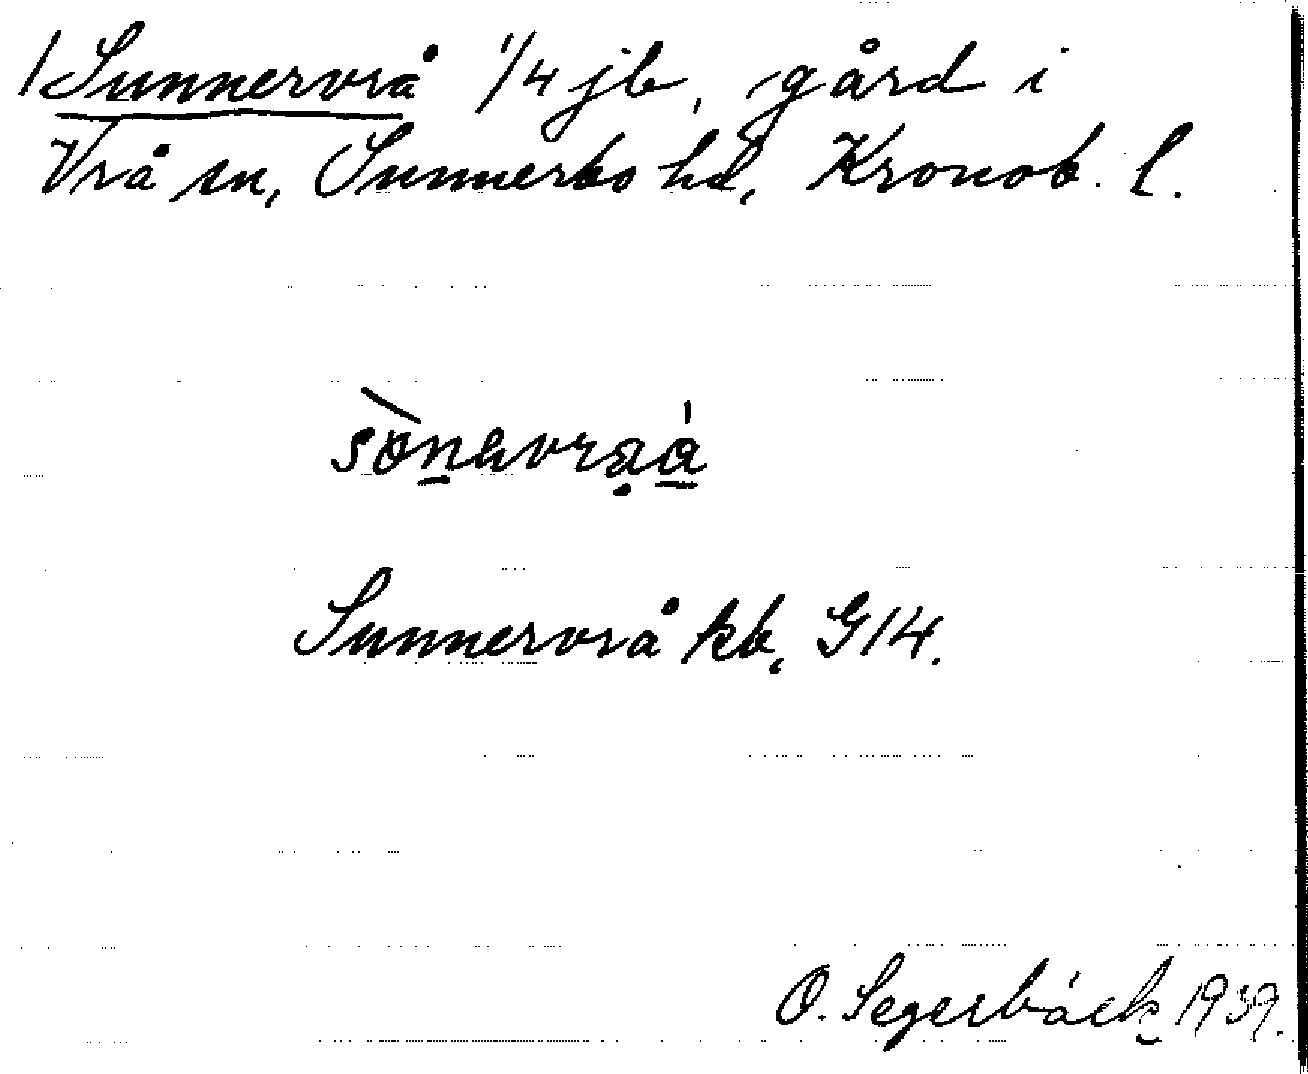 /Sunnervrå 1/4 jb, gård i
Vrå sn, Sunnerbo hd, Kronob. l.
Sunnervrå kb, G14.
O. Segerbäck 1939.